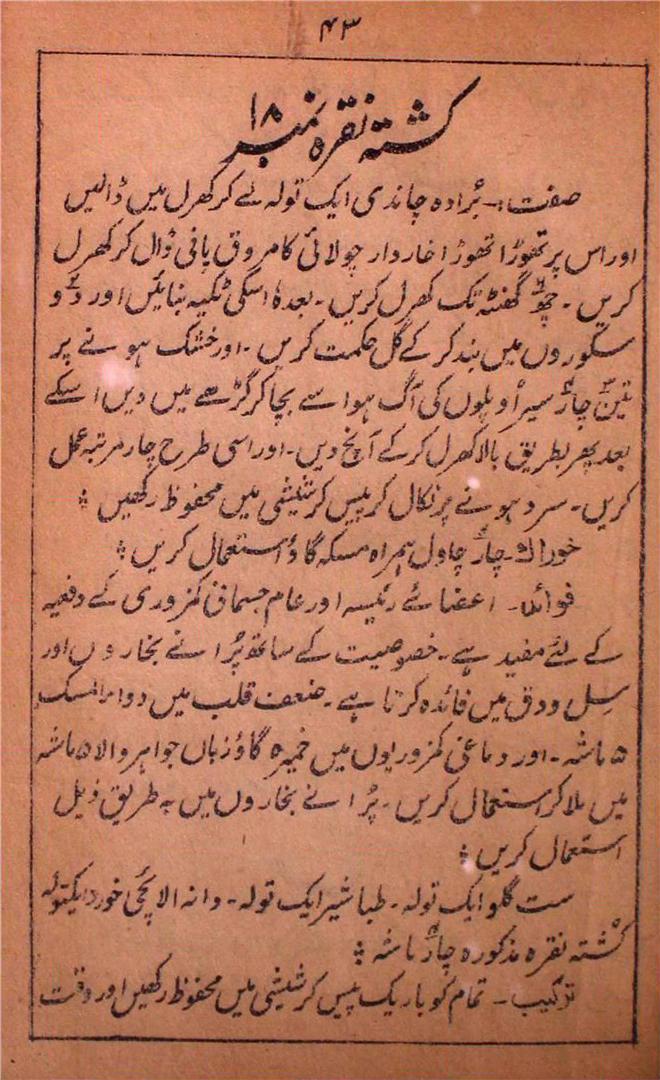 ۴۳
کشتہ نقرہ نمبر ۱۸
صفت:۔ بُرادہ چاندی ایک تولہ لے کر کھرل میں ڈالیں
اور اس پر تھوڑا تھوڑا خاردار چولائی کا مروق پانی ڈال کر کھرل
کریں۔ چھ گھنٹہ تک کھرل کریں۔ بعدہٗ اسکی ٹکیہ بنائیں اور دو
سکوروں میں بند کر کے گل حکمت کریں۔ اور خشک ہونے پر
تین چار سیر اُوپلوں کی آگ ہوا سے بچا کر گڑھے میں دیں اسکے
بعد پھر بطریق بالا کھرل کر کے آنچ دیں۔ اور اسی طرح چار مرتبہ عمل
کریں۔ سرد ہونے پر نکال کر پیس کر شیشی میں محفوظ رکھیں ؛
خوراک۔ چار چاول ہمراہ مسکہ گاؤ استعمال کریں ؛
فوائد۔ اعضائے رئیسہ اور عام جسمانی کمزوری کے دفعیہ
کے لئے مفید ہے۔ خصوصیت کے ساتھ پُرانے بخاروں اور
سِل و دق میں فائدہ کرتا ہے۔ ضعف قلب میں دواءالمسک
۵ ماشہ۔ اور دماغی کمزوریوں میں خمیرہ گاؤزباں جواہر والا ۵ ماشہ
میں ملا کر استعمال کریں۔ پُرانے بخاروں میں بہ طریق ذیل
استعمال کریں ؛
ست گلو ایک تولہ۔ طباشیر ایک تولہ۔ دانہ الائچی خورد ایکتولہ
کُشتہ نقرہ مذکورہ چار ماشہ ؛
ترکیب۔ تمام کو باریک پیس کر شیشی میں محفوظ رکھیں اور وقت